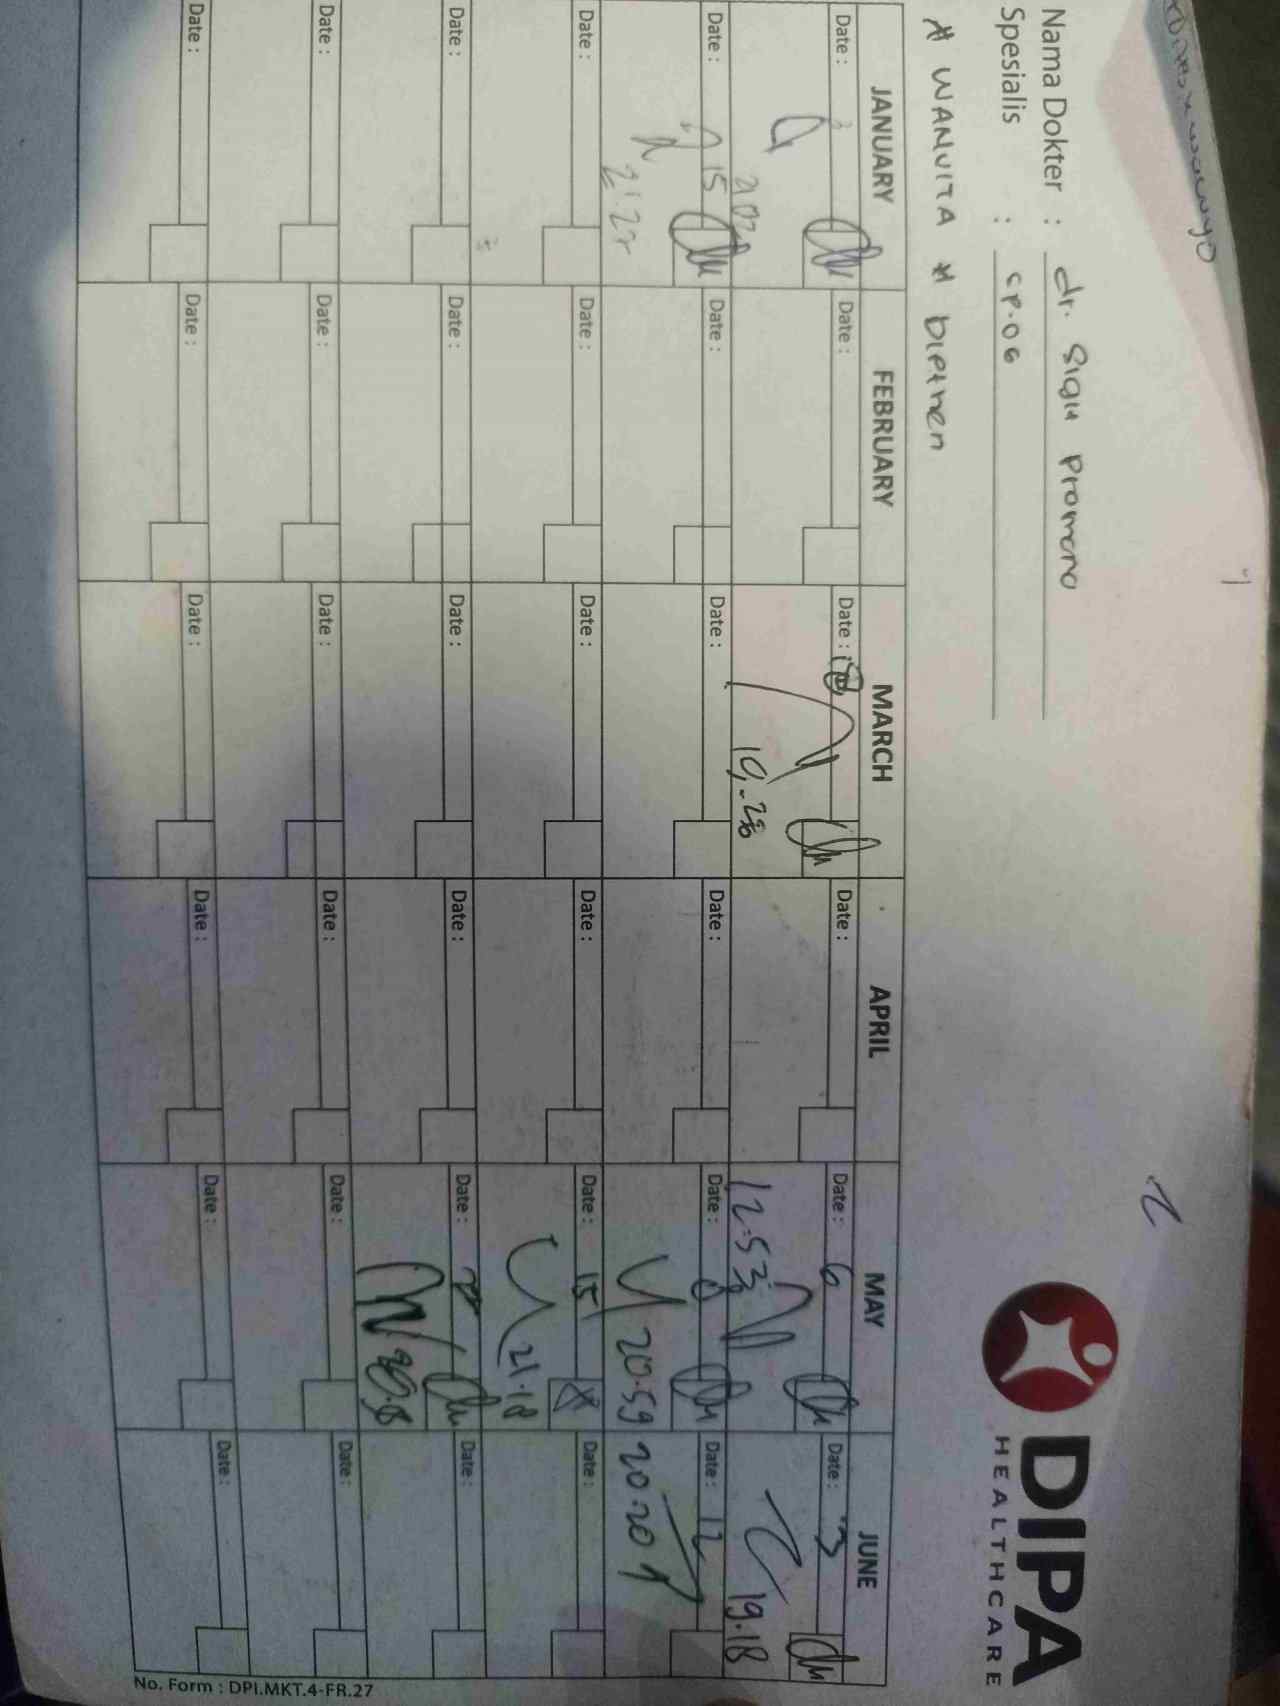 DIPA
HEALTHCARE
Nama Dokter : dr. Sigit Pramono
Spesialis : sp.OG
* WANVITA * DIPTHEN
JANUARY FEBRUARY MARCH APRIL MAY JUNE
Date : Date : Date : Date : Date : 6 Date : 3
12.53 19.18
Date : 15 Date : Date : Date : Date : 8 Date : 12
21.27 20.59 20.20
Date : Date : Date : Date : Date : 15 Date :
21.18
Date : Date : Date : Date : Date : Date :
Date : Date : Date : Date : Date : Date :
Date : Date : Date : Date : Date : Date :
No. Form : DPI.MKT.4-FR.27